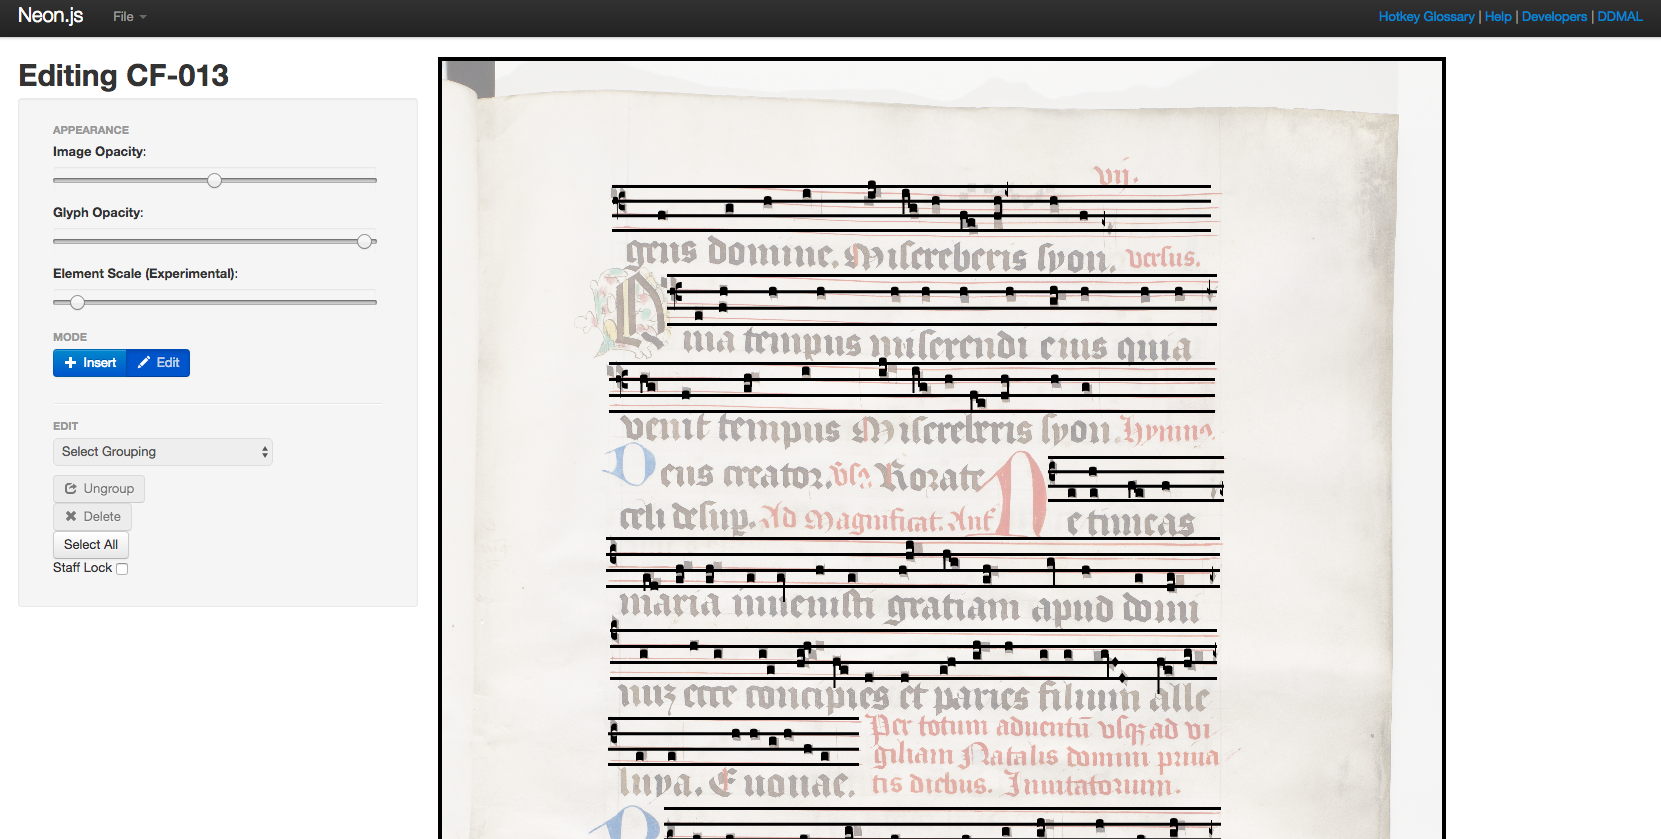 Neon.js File Hotkey Glossary | Help | Developers | DDMAL
Editing CF-013
APPEARANCE
Image Opacity:
Glyph Opacity:
Element Scale (Experimental):
MODE
Insert Edit
EDIT
Select Grouping
Ungroup
Delete
Select All
Staff Lock
vij.
gens domine. Misereberis syon. versus.
ma tempus miserendi eius quia
venit tempus Misereberis syon. Hymno.
Deus creator. Rorate
celi desup. Ad Magnificat. Ant
e timeas
maria invenisti gratiam apud domi
concipies et paries filium alle
Per totum ad vi
giliam Natalis domini prima
luya. Euouae. tis diebus. Inuitatorium.